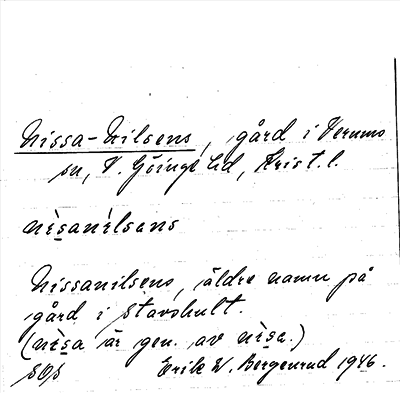 Nissa-Nilsens, gård i Verums
sn, V. Göinge hd, Krist. l.
nìsanìlsens
Nissanilsens, äldre namn på
gård i Stavshult.
(nìsa är gen. av nìsa.)
SOS Erik W. Bergenrud 1946.